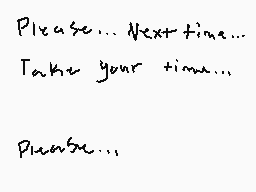 Please... Next time...
Take your time...
Please...